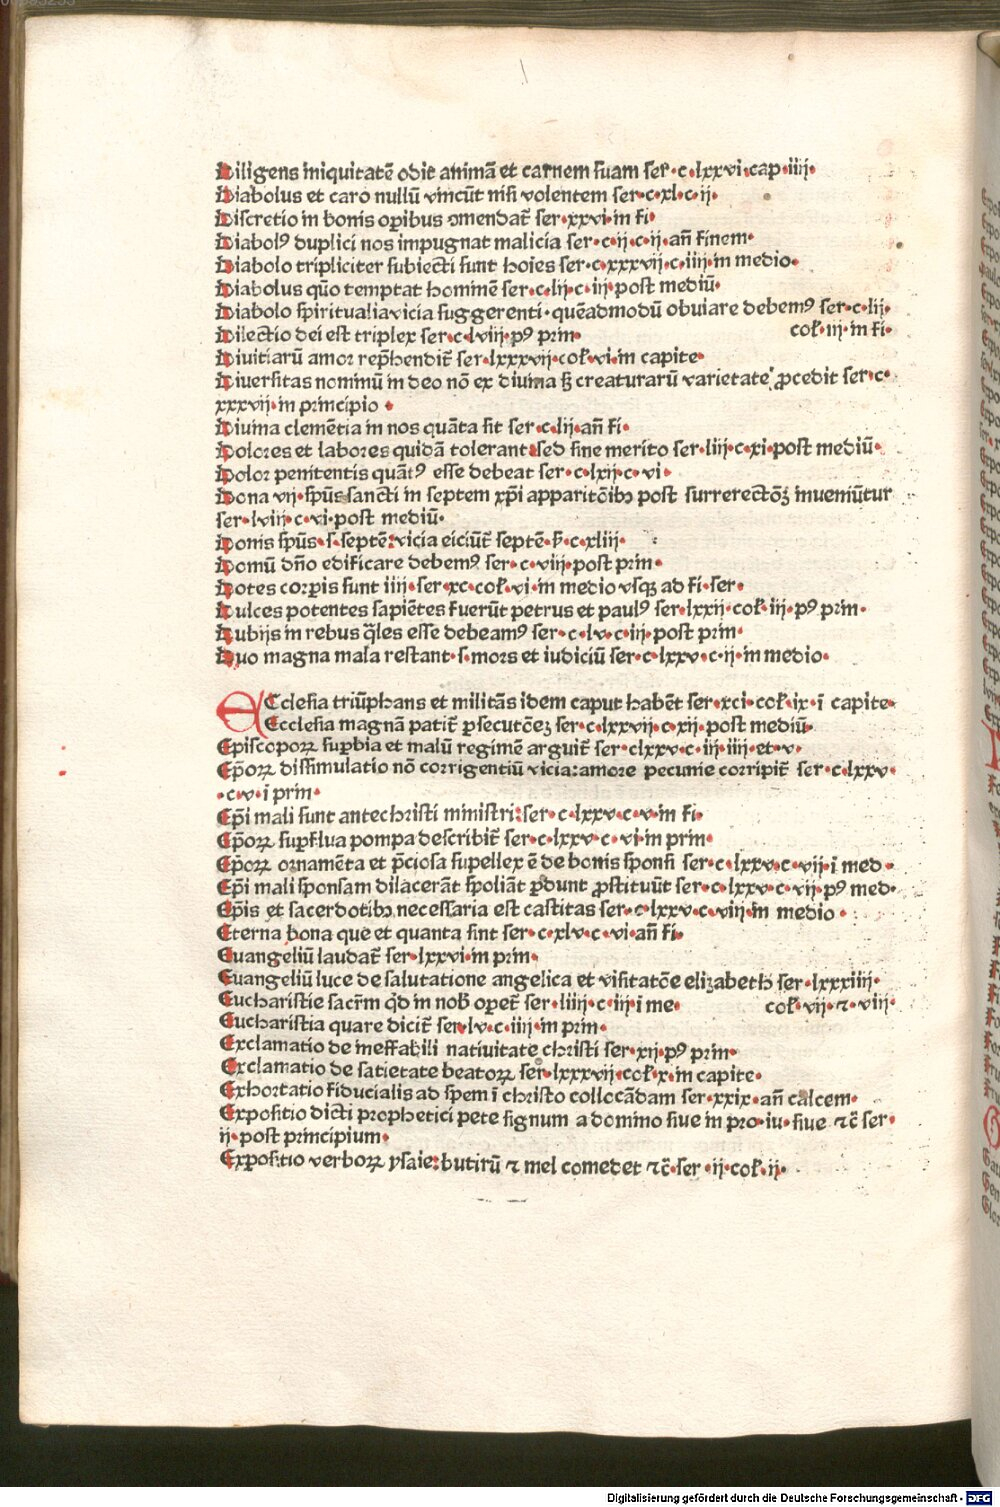 Diligens iniquitatē odit animā et carnem suam ser·c·lxxvi·cap·iiij·
Diabolus et caro nullū vincūt nisi volentem ser·c·xl·c·ij·
Discretio in bonis oꝑibus ꝯmendat̄ ser·xxvi·in fi·
Diabolꝰ duplici nos impugnat malicia ser·c·ij·c·ij·an̄ finem·
Diabolo tripliciter subiecti sunt hoīes ser·c·xxxvij·c·iiij·in medio·
Diabolus quō temptat hominē ser·c·lij·c·iij·post mediū·
Diabolo spiritualia vicia suggerenti·quēadmodū obuiare debemꝰ ser·c·lij·
Dilectio dei est triplex ser·c·lviij·pꝰ prin· col̄·iij·in fi·
Diuitiarū amor rep̄hendit̄ ser·lxxxvij·col̄·vi·in capite·
Diuersitas nominū in deo nō ex diuina sꝫ creaturarū varietate ꝓcedit ser·c·
xxxvij·in principio·
Diuina clemētia in nos quāta sit ser·c·lij·an̄ fi·
Dolores et labores quidā tolerant:sed sine merito ser·liij·c·xi·post mediū·
Dolor penitentis quātꝰ esse debeat ser·c·lxij·c·vi·
Dona vij·spūs sancti in septem xp̄i apparitōibꝫ post surrerectōꝫ inueniūtur
ser·lviij·c·vi·post mediū·
Donis spūs·s·septē:vicia eiciūt̄ septē·s̄·c·xliij·
Domū dn̄o edificare debemꝰ ser·c·viij·post prin·
Dotes corꝑis sunt iiij·ser·xc·col̄·vi·in medio vsqꝫ ad fi·ser·
Dulces potentes sapiētes fuerūt petrus et paulꝰ ser·lxxij·col̄·iij·pꝰ prin·
Dubijs in rebus q̄les esse debeamꝰ ser·c·lv·c·iij·post prin·
Duo magna mala restant·s·mors et iudiciū ser·c·lxxv·c·ij·in medio·
ECclesia triūphans et militās idem caput habēt ser·xci·col̄·ix·ī capite·
Ecclesia magnā patit̄ ꝑsecutōeꝫ ser·c·lxxvij·c·xij·post mediū·
Episcopoꝝ suꝑbia et malū regimē arguit̄ ser·clxxv·c·iij·iiij·et·v·
Ep̄oꝝ dissimulatio nō corrigentiū vicia:amore pecunie corripit̄ ser·c·lxxv·
·c·v·ī prin·
Ep̄i mali sunt antechristi ministri:ser·c·lxxv·c·v·in fi·
Ep̄oꝝ suꝑflua pompa describit̄ ser·c·lxxv·c·vi·in prin·
Ep̄oꝝ ornamēta et p̄ciosa supellex ē de bonis sponsi ser·c·lxxv·c·vij·ī med·
Ep̄i mali sponsam dilacerāt spoliāt ꝑdunt ꝓstituūt ser·c·lxxv·c·vij·pꝰ med·
Ep̄is et sacerdotibꝫ necessaria est castitas ser·c·lxxv·c·viij·in medio·
Eterna bona que et quanta sint ser·c·xlv·c·vi·an̄ fi·
Euangeliū laudat̄ ser·lxxvi·in prin·
Euangeliū luce de salutatione angelica et visitatōe elizabeth ser·lxxxiiij·
Eucharistie sacr̄m qd̄ in nob̄ oꝑet̄ ser·liiij·c·iij·ī me· col̄·vij·⁊·viij·
Eucharistia quare dicit̄ ser·lv·c·iiij·in prin·
Exclamatio de ineffabili natiuitate christi ser·xij·pꝰ prin·
Exclamatio de satietate beatoꝝ ser·lxxxvij·col̄·x·in capite·
Exhortatio fiducialis ad spem ī christo collocādam ser·xxix·an̄ calcem·
Expositio dicti prophetici pete signum a domino siue in pro·iu·siue ⁊c̄ ser·
ij·post principium·
Expositio verboꝝ ysaie:butirū ⁊ mel comedet ⁊c̄·ser·ij·col̄·ij·
Digitalisierung gefördert durch die Deutsche Forschungsgemeinschaft - DFG